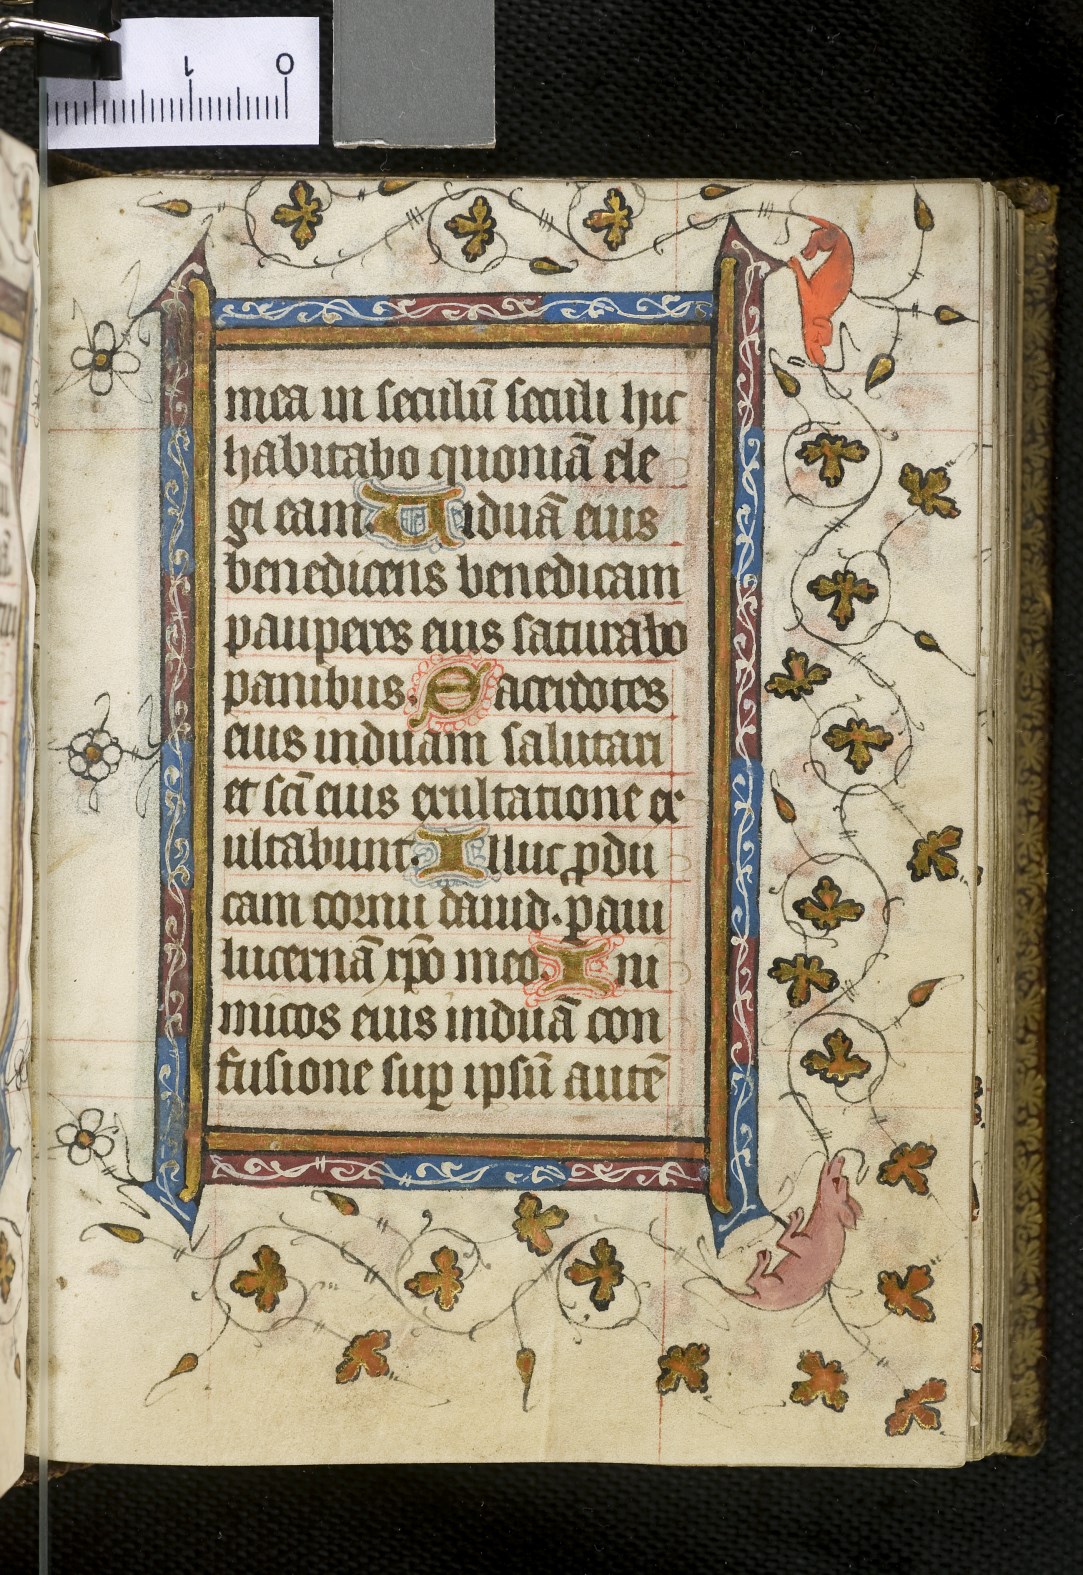 1 0
mea in seculū seculi hic
habitabo quoniā ele
gi eam. Uiduā eius
benedicens benedicam
pauperes eius saturabo
panibus. Sacerdotes
eius induam salutari
et scī eius exultatione ex
ultabunt. Illuc ꝓdu
cam cornu dauid. paui
lucernā xp̄o meo. Ini
micos eius induā con
fusione suꝑ ipsū autē